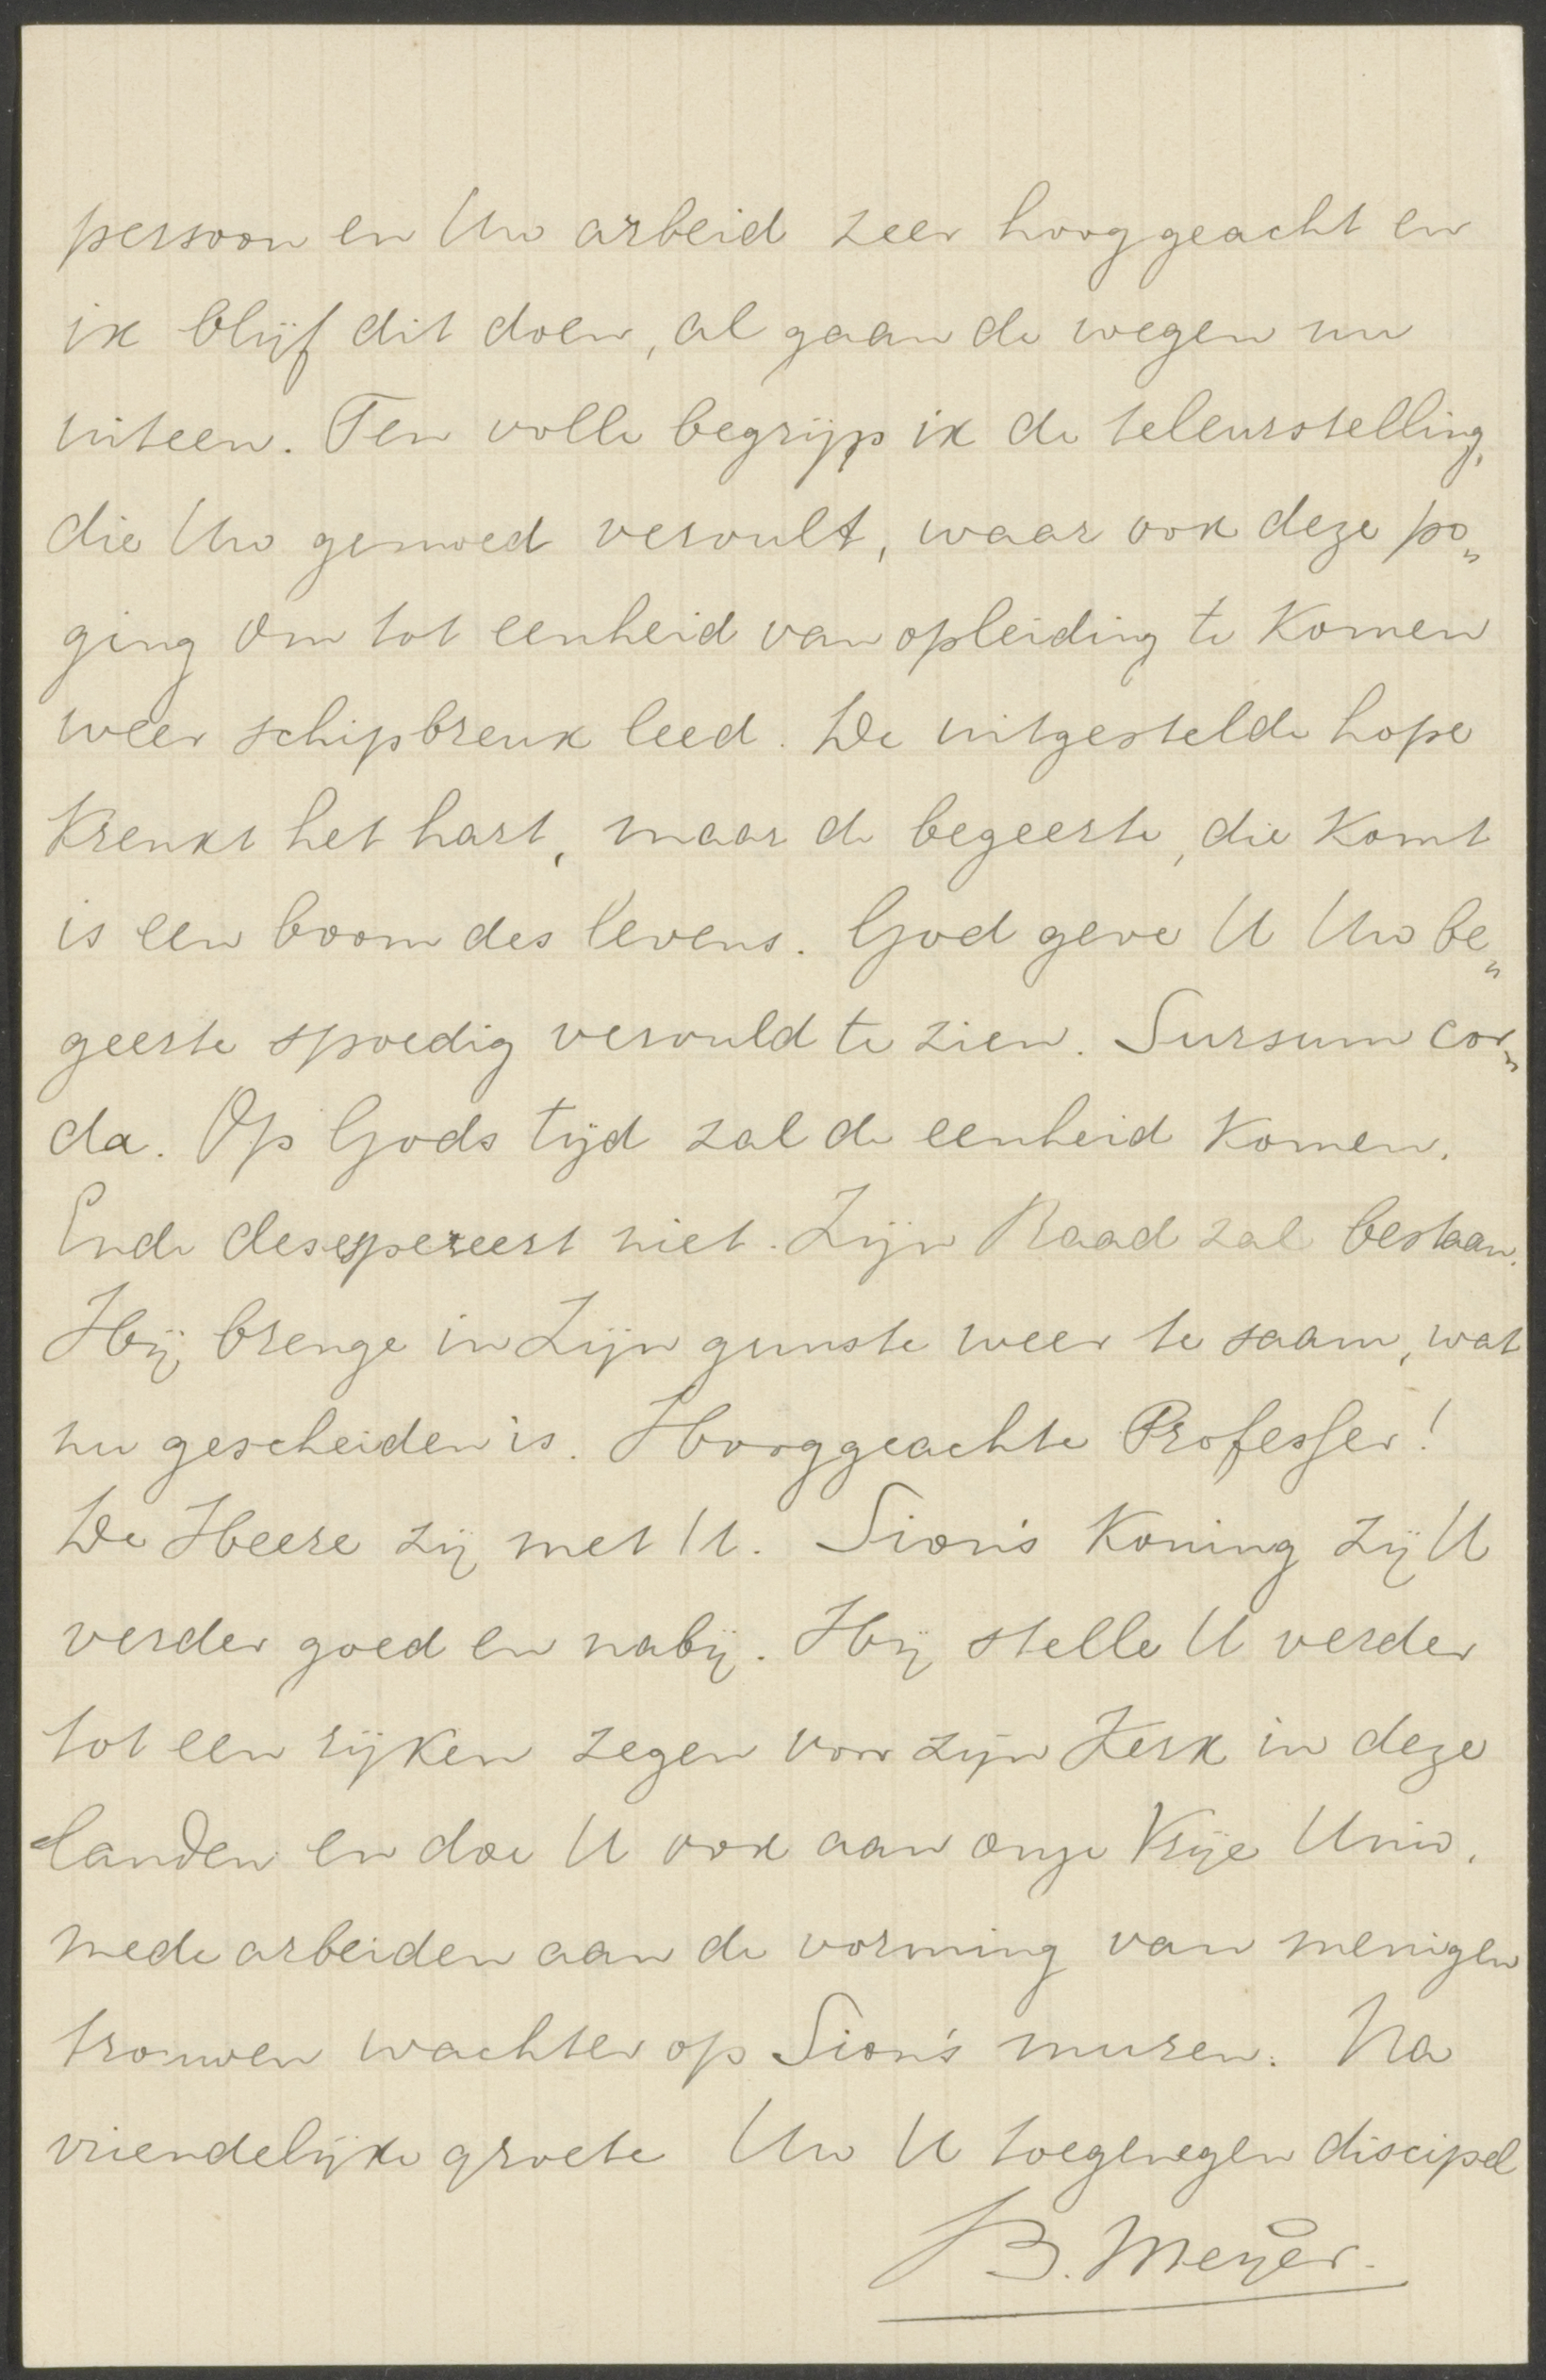 persoon en Uw arbeid zeer hooggeacht en
ik blijf dit doen, al gaan de wegen nu
uiteen. Ten volle begrijp ik de teleurstelling,
die Uw gemoed vervult, waar ook deze po„
ging om tot eenheid van opleiding te komen
weer schipbreuk leed. De uitgestelde hope
krenkt het hart, maar de begeerte, die komt
is een boom des levens. God geve U Uw be„
geerte spoedig vervuld te zien. Sursum cor„
da. Op Gods tijd zal de eenheid komen.
Ende desespereert niet. Zijn Raad zal bestaan.
Hij brenge in Zijn gunste weer te saam, wat
nu gescheiden is. Hooggeachte Professer!
De Heere zij met U. Sion's Koning zij U
verder goed en nabij. Hij stelle U verder
tot een rijken zegen voor zijn Kerk in deze
landen en doe U ook aan onze Vrije Univ.
mede arbeiden aan de vorming van menigen
trouwen wachter op Sion's muren. Na
vriendelijke groete Uw U toegenegen discipel
B. Meijer.